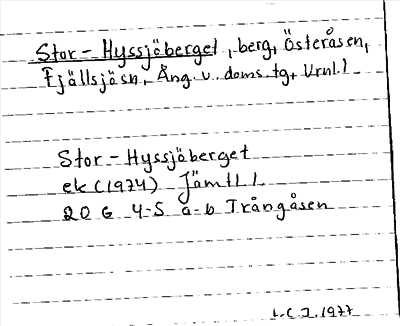 Stor-Hyssjöberget, berg, Österåsen,
Fjällsjö sn, Ång. v. doms. tg, Vrnl. l
Stor-Hyssjöberget
ek (1974) Jämtl l.
20 G 4-5 a-b Trångåsen
L.C.J. 1977